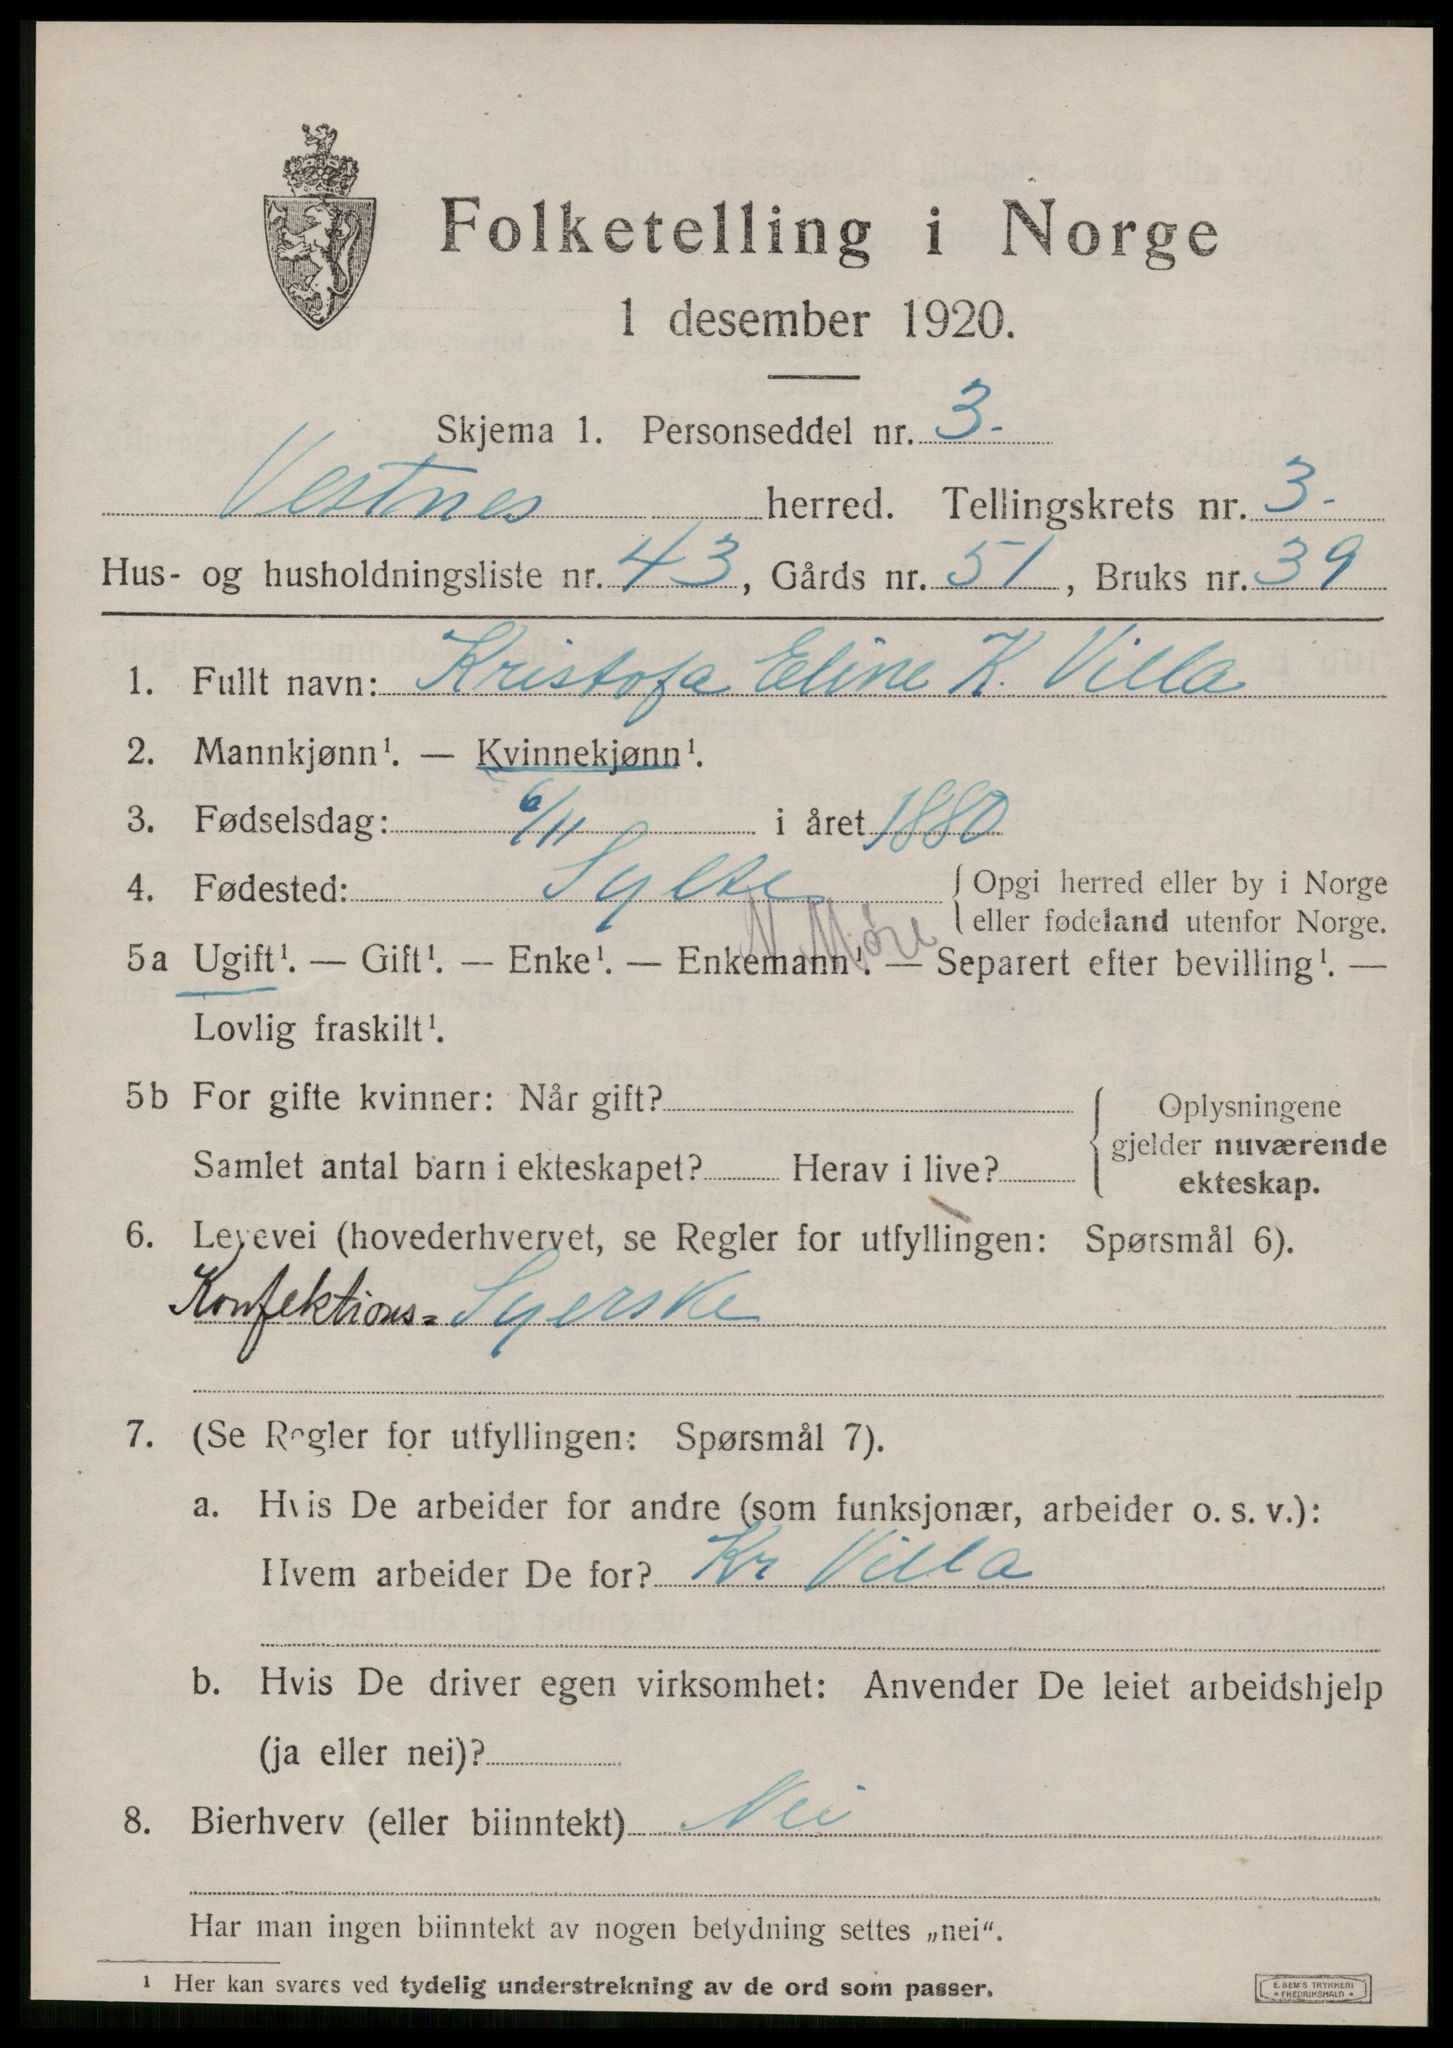 Folketelling i Norge
1 desember 1920.
Skjema 1. Personseddel nr. 3.
Vestnes herred. Tellingskrets nr. 3.
Hus- og husholdningsliste nr. 43, Gårds nr. 51, Bruks nr. 39
1. Fullt navn: Kristofa Eline K. Villa
2. Mannkjønn¹. — Kvinnekjønn¹.
3. Fødselsdag: 6/11 i året 1880
4. Fødested: Sylte { Opgi herred eller by i Norge
eller fødeland utenfor Norge.
N. Møre
5a Ugift¹. — Gift¹. — Enke¹. — Enkemann¹. — Separert efter bevilling¹. —
Lovlig fraskilt¹.
5b For gifte kvinner: Når gift? { Oplysningene
gjelder nuværende
Samlet antal barn i ekteskapet? Herav i live?
ekteskap.
6. Levevei (hovederhvervet, se Regler for utfyllingen: Spørsmål 6).
Konfektions= Syerske
7. (Se Regler for utfyllingen: Spørsmål 7).
a. Hvis De arbeider for andre (som funksjonær, arbeider o. s. v.):
Hvem arbeider De for? Kr Villa
b. Hvis De driver egen virksomhet: Anvender De leiet arbeidshjelp
(ja eller nei)?
8. Bierhverv (eller biinntekt) Nei
Har man ingen biinntekt av nogen betydning settes „nei“.
¹ Her kan svares ved tydelig understrekning av de ord som passer.
E. SEM'S TRYKKERI
• FREDRIKSHALD •